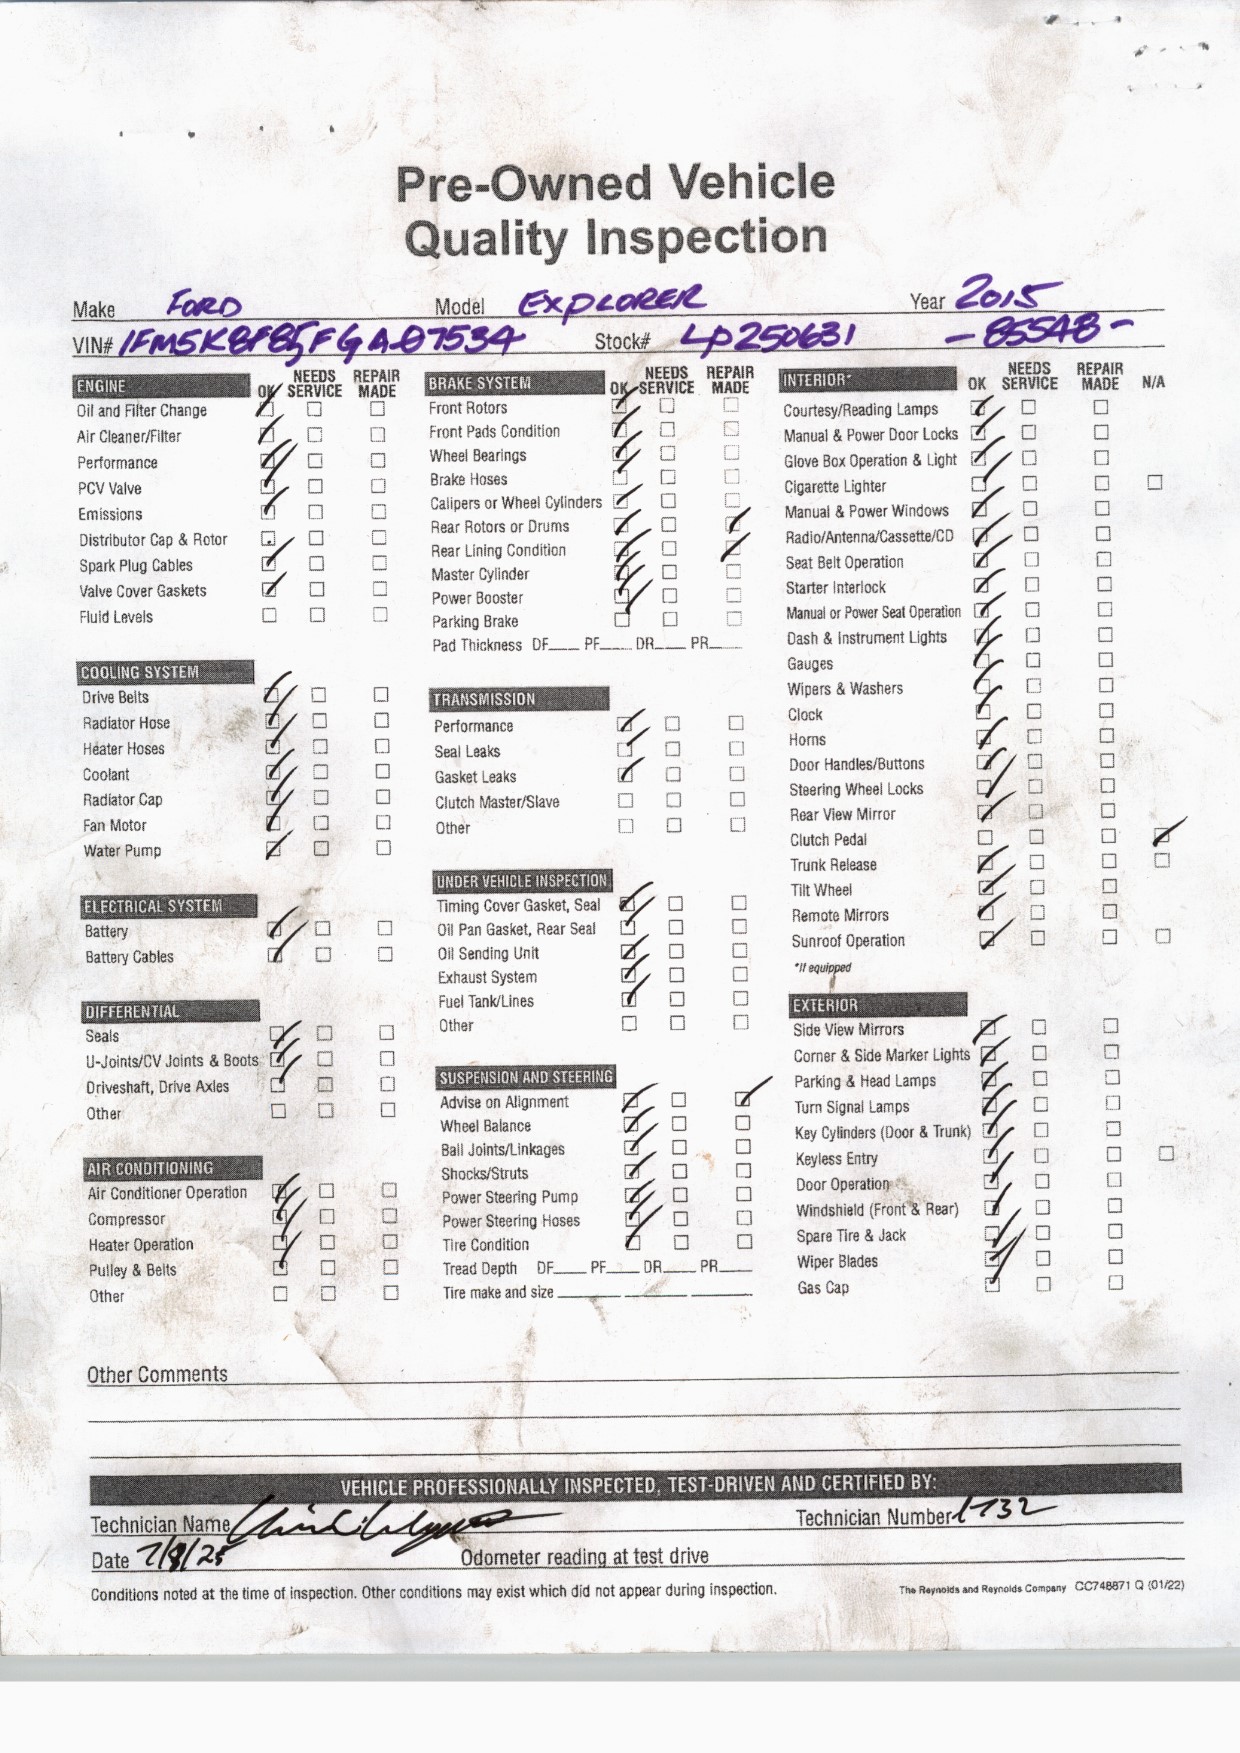 Pre-Owned Vehicle
Quality Inspection
Make FORD Model EXPLORER Year 2015
VIN# 1FM5K8F85FGA07534 Stock# LP250631 -85548-
ENGINE OK NEEDS SERVICE REPAIR MADE
Oil and Filter Change
Air Cleaner/Filter
Performance
PCV Valve
Emissions
Distributor Cap & Rotor
Spark Plug Cables
Valve Cover Gaskets
Fluid Levels
COOLING SYSTEM
Drive Belts
Radiator Hose
Heater Hoses
Coolant
Radiator Cap
Fan Motor
Water Pump
ELECTRICAL SYSTEM
Battery
Battery Cables
DIFFERENTIAL
Seals
U-Joints/CV Joints & Boots
Driveshaft, Drive Axles
Other
AIR CONDITIONING
Air Conditioner Operation
Compressor
Heater Operation
Pulley & Belts
Other
BRAKE SYSTEM OK NEEDS SERVICE REPAIR MADE
Front Rotors
Front Pads Condition
Wheel Bearings
Brake Hoses
Calipers or Wheel Cylinders
Rear Rotors or Drums
Rear Lining Condition
Master Cylinder
Power Booster
Parking Brake
Pad Thickness DF___ PF___ DR___ PR___
TRANSMISSION
Performance
Seal Leaks
Gasket Leaks
Clutch Master/Slave
Other
UNDER VEHICLE INSPECTION
Timing Cover Gasket, Seal
Oil Pan Gasket, Rear Seal
Oil Sending Unit
Exhaust System
Fuel Tank/Lines
Other
SUSPENSION AND STEERING
Advise on Alignment
Wheel Balance
Ball Joints/Linkages
Shocks/Struts
Power Steering Pump
Power Steering Hoses
Tire Condition
Tread Depth DF___ PF___ DR___ PR___
Tire make and size
INTERIOR* OK NEEDS SERVICE REPAIR MADE N/A
Courtesy/Reading Lamps
Manual & Power Door Locks
Glove Box Operation & Light
Cigarette Lighter
Manual & Power Windows
Radio/Antenna/Cassette/CD
Seat Belt Operation
Starter Interlock
Manual or Power Seat Operation
Dash & Instrument Lights
Gauges
Wipers & Washers
Clock
Horns
Door Handles/Buttons
Steering Wheel Locks
Rear View Mirror
Clutch Pedal
Trunk Release
Tilt Wheel
Remote Mirrors
Sunroof Operation
*If equipped
EXTERIOR
Side View Mirrors
Corner & Side Marker Lights
Parking & Head Lamps
Turn Signal Lamps
Key Cylinders (Door & Trunk)
Keyless Entry
Door Operation
Windshield (Front & Rear)
Spare Tire & Jack
Wiper Blades
Gas Cap
Other Comments
VEHICLE PROFESSIONALLY INSPECTED, TEST-DRIVEN AND CERTIFIED BY:
Technician Name Technician Number 1732
Date 7/8/25 Odometer reading at test drive
Conditions noted at the time of inspection. Other conditions may exist which did not appear during inspection.
The Reynolds and Reynolds Company CC748871 Q (01/22)